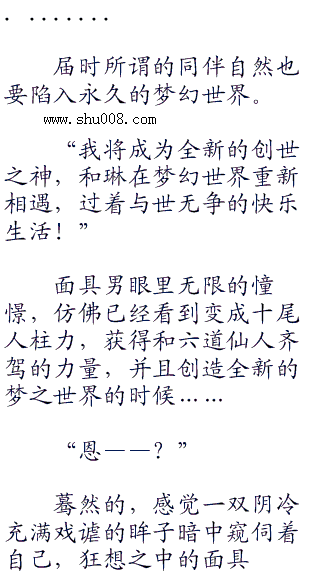 . .......
届时所谓的同伴自然也
要陷入永久的梦幻世界。
www.shu008.com
“我将成为全新的创世
之神，和琳在梦幻世界重新
相遇，过着与世无争的快乐
生活！”
面具男眼里无限的憧
憬，仿佛已经看到变成十尾
人柱力，获得和六道仙人齐
驾的力量，并且创造全新的
梦之世界的时候……
“恩——？”
蓦然的，感觉一双阴冷
充满戏谑的眸子暗中窥伺着
自己，狂想之中的面具